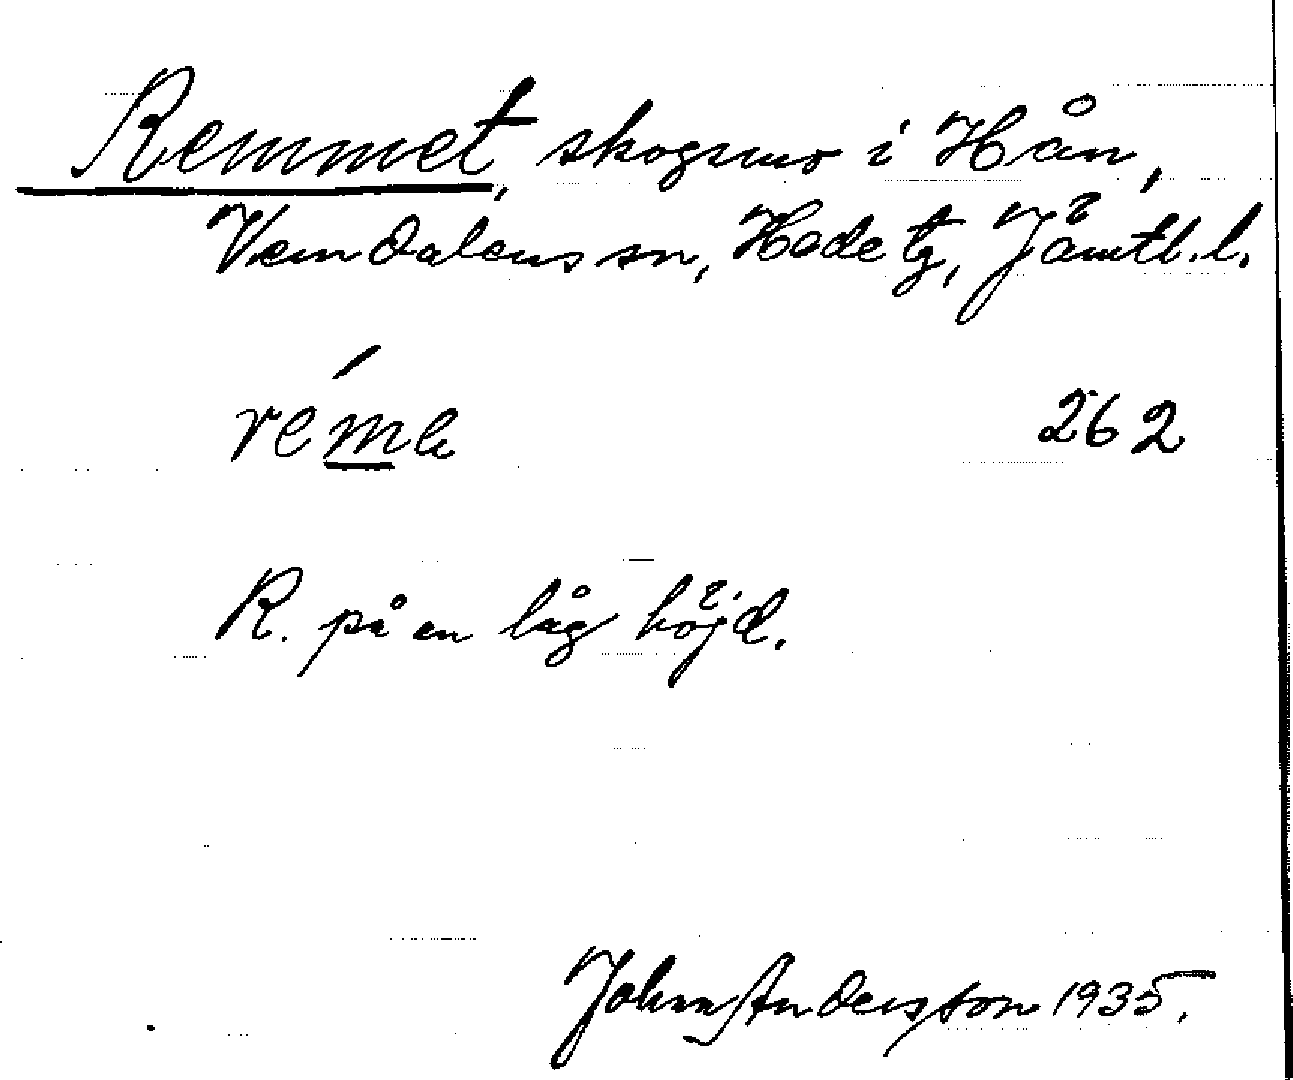 Remmet, skogsmo i Hån,
Vemdalens sn, Hede tg, Jämtl. l.
réme 262
R. på en låg höjd.
John Andersson 1935.